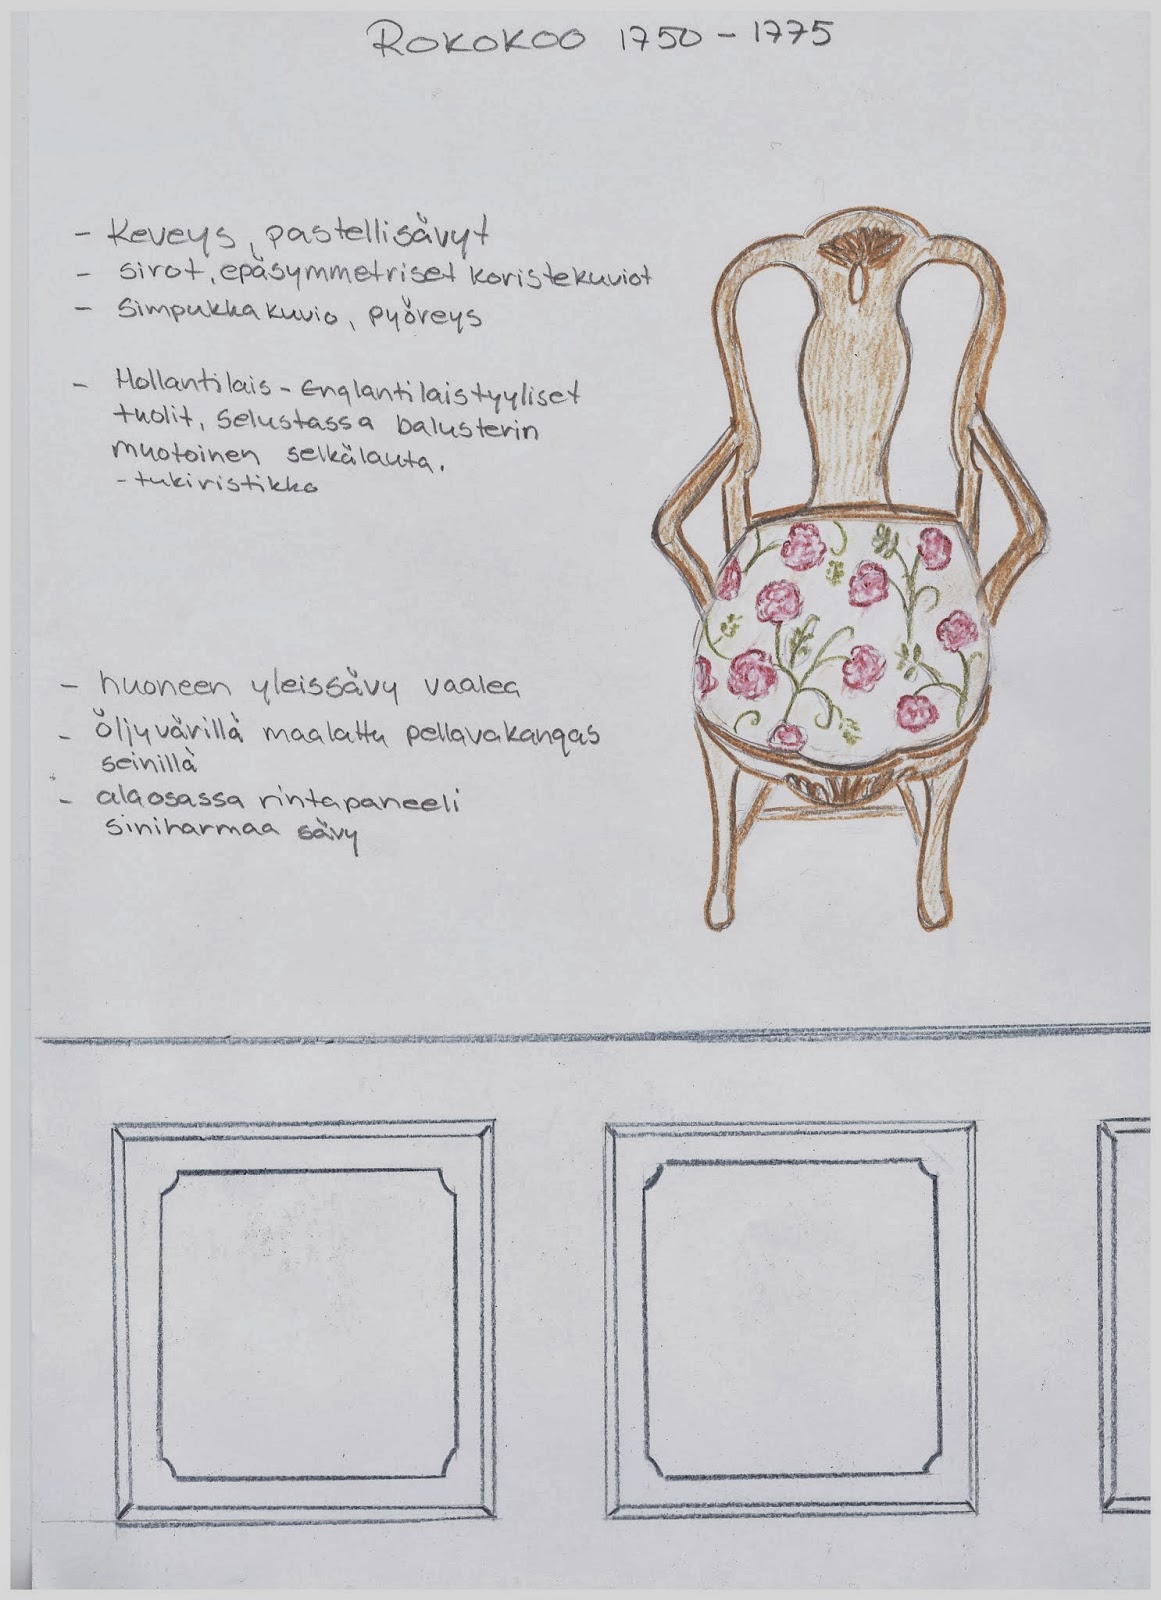 Rokokoo 1750 – 1775
- Keveys, pastellisävyt
- Sirot, epäsymmetriset koristekuviot
- Simpukkakuvio, pyöreys
- Hollantilais-Englantilaistyyliset
tuolit, selustassa balusterin
muotoinen selkälauta.
- tukiristikko
- huoneen yleissävy vaalea
- öljyvärillä maalattu pellavakangas
seinillä
- alaosassa rintapaneeli
siniharmaa sävy